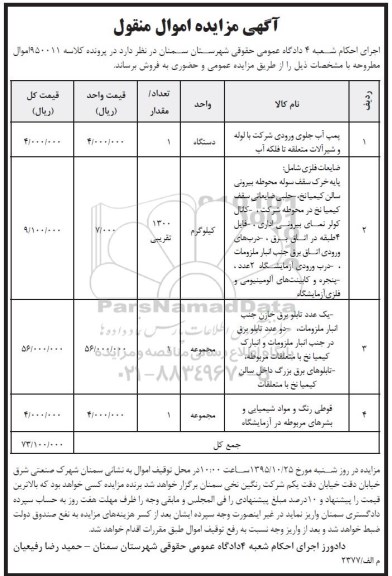 آگهی مزایده اموال منقول
اجرای احکام شعبه ۴ دادگاه عمومی حقوقی شهرستان سمنان در نظر دارد در پرونده کلاسه ۹۵۰۰۱۱ اموال
مطروحه با مشخصات ذیل را از طریق مزایده عمومی و حضوری به فروش برساند.
ردیف
نام کالا
واحد
تعداد/ مقدار
قیمت واحد (ریال)
قیمت کل (ریال)
۱
پمپ آب جلوی ورودی شرکت با لوله
و شیرآلات متعلقه تا فلکه آب
دستگاه
۱
۴/۰۰۰/۰۰۰
۴/۰۰۰/۰۰۰
۲
ضایعات فلزی شامل:
پایه خرک سقف سوله محوطه بیرونی
سالن کیمیا نخ، حلبی ضایعاتی سقف
کیمیا نخ در محوطه شرکت، -کانال
کولر نمای بیرونی اداری، -فایل
۴طبقه در اتاق برق، -درب‌های
ورودی اتاق برق جنب انبار ملزومات
، -درب ورودی آزمایشگاه ۲عدد،
-پنجره و کابینت‌های آلومینیومی و
فلزی آزمایشگاه
کیلوگرم
۱۳۰۰
تقریبی
۷/۰۰۰
۹/۱۰۰/۰۰۰
۳
-یک عدد تابلو برق خازن جنب
انبار ملزومات، -دو عدد تابلو برق
در جنب انبار ملزومات و انبارک
کیمیا نخ با متعلقات مربوطه،
-تابلوهای برق بزرگ داخل سالن
کیمیا نخ با متعلقات
مجموعه
۱
۵۶/۰۰۰/۰۰۰
۵۶/۰۰۰/۰۰۰
۴
قوطی رنگ و مواد شیمیایی و
بشرهای مربوطه در آزمایشگاه
مجموعه
۱
۴/۰۰۰/۰۰۰
۴/۰۰۰/۰۰۰
جمع کل
۷۳/۱۰۰/۰۰۰
ParsNamadData
۰۲۱-۸۸۳۴۹۶۷۰
مزایده در روز شنبه مورخ ۱۳۹۵/۱۰/۲۵ ساعت ۱۰:۰۰ در محل توقیف اموال به نشانی سمنان شهرک صنعتی شرق
خیابان دقت خیابان دقت یکم شرکت رنگین نخی سمنان برگزار خواهد شد برنده مزایده کسی خواهد بود که بالاترین
قیمت را پیشنهاد و ۱۰درصد مبلغ پیشنهادی را فی المجلس و مابقی وجه را ظرف مهلت هفت روز به حساب سپرده
دادگستری سمنان واریز نماید در غیر اینصورت وجه سپرده ایشان بعد از کسر هزینه‌های مزایده به نفع صندوق دولت
ضبط خواهد شد و بعد از واریز وجه نسبت به رفع توقیف اموال طبق مقررات اقدام خواهد شد.
دادورز اجرای احکام شعبه ۴دادگاه عمومی حقوقی شهرستان سمنان – حمید رضا رفیعیان
م الف/۲۳۷۷